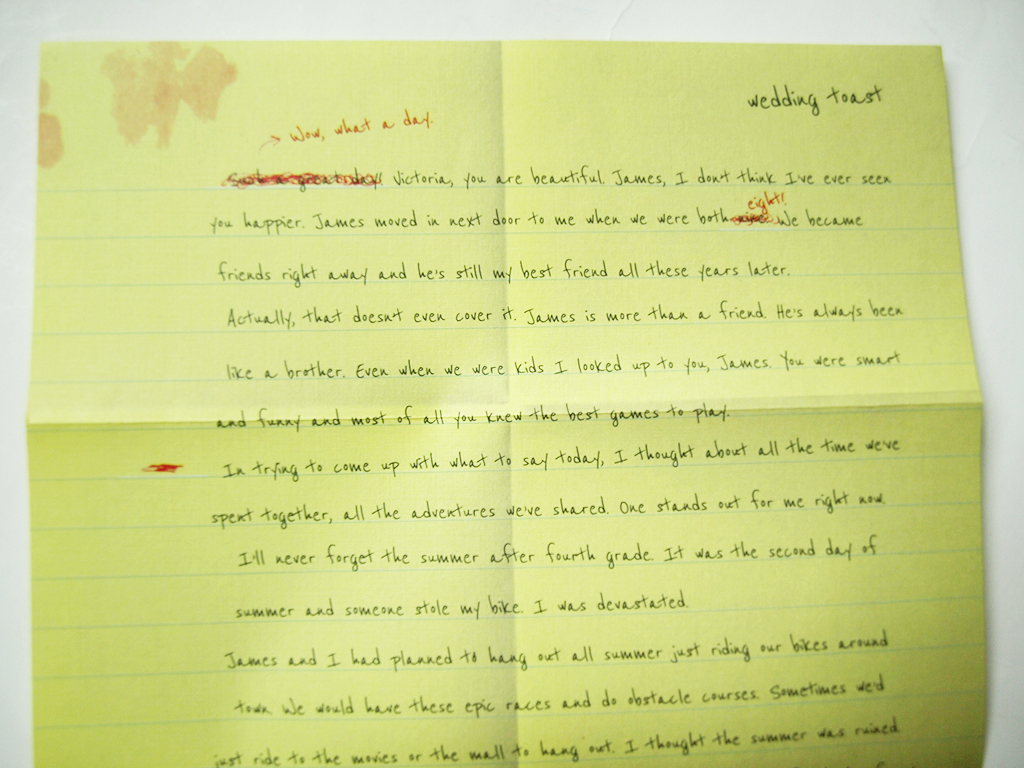 wedding toast
Wow, what a day.
Such a great day! Victoria, you are beautiful. James, I don't think I've ever seen
eight!
you happier. James moved in next door to me when we were both nine. We became
friends right away and he's still my best friend all these years later.
Actually, that doesn't even cover it. James is more than a friend. He's always been
like a brother. Even when we were kids I looked up to you, James. You were smart
and funny and most of all you knew the best games to play.
In trying to come up with what to say today, I thought about all the time we've
spent together, all the adventures we've shared. One stands out for me right now.
I'll never forget the summer after fourth grade. It was the second day of
summer and someone stole my bike. I was devastated.
James and I had planned to hang out all summer just riding our bikes around
town. We would have these epic races and do obstacle courses. Sometimes we'd
just ride to the movies or the mall to hang out. I thought the summer was ruined